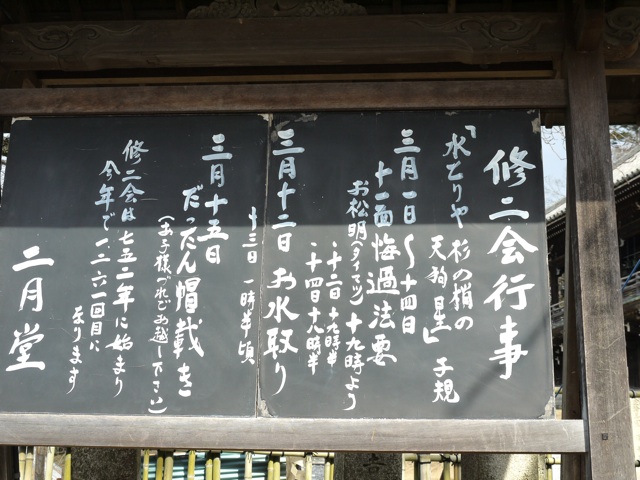 修二会行事
「水とりや 杉の梢の
天狗星」 子規
三月一日〜十四日
十一面悔過法要
お松明(タイマツ) 十九時より
・十二日 十九時半
・十四日 十八時半
三月十二日 お水取り
十三日 一時半頃
三月十五日
だったん帽戴き
(お子様づれでお越し下さい)
修二会は七五二年に始まり
今年で一二六一回目に
なります
二月堂